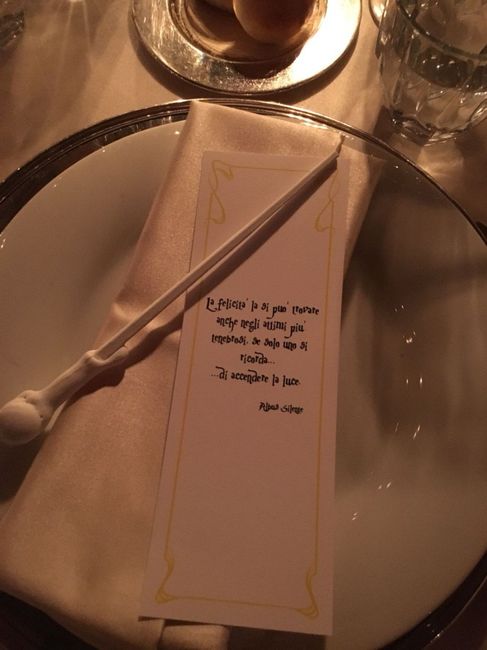 La felicita' la si puo' trovare
anche negli attimi piu'
tenebrosi, se solo uno si
ricorda...
...di accendere la luce.
Albus Silente